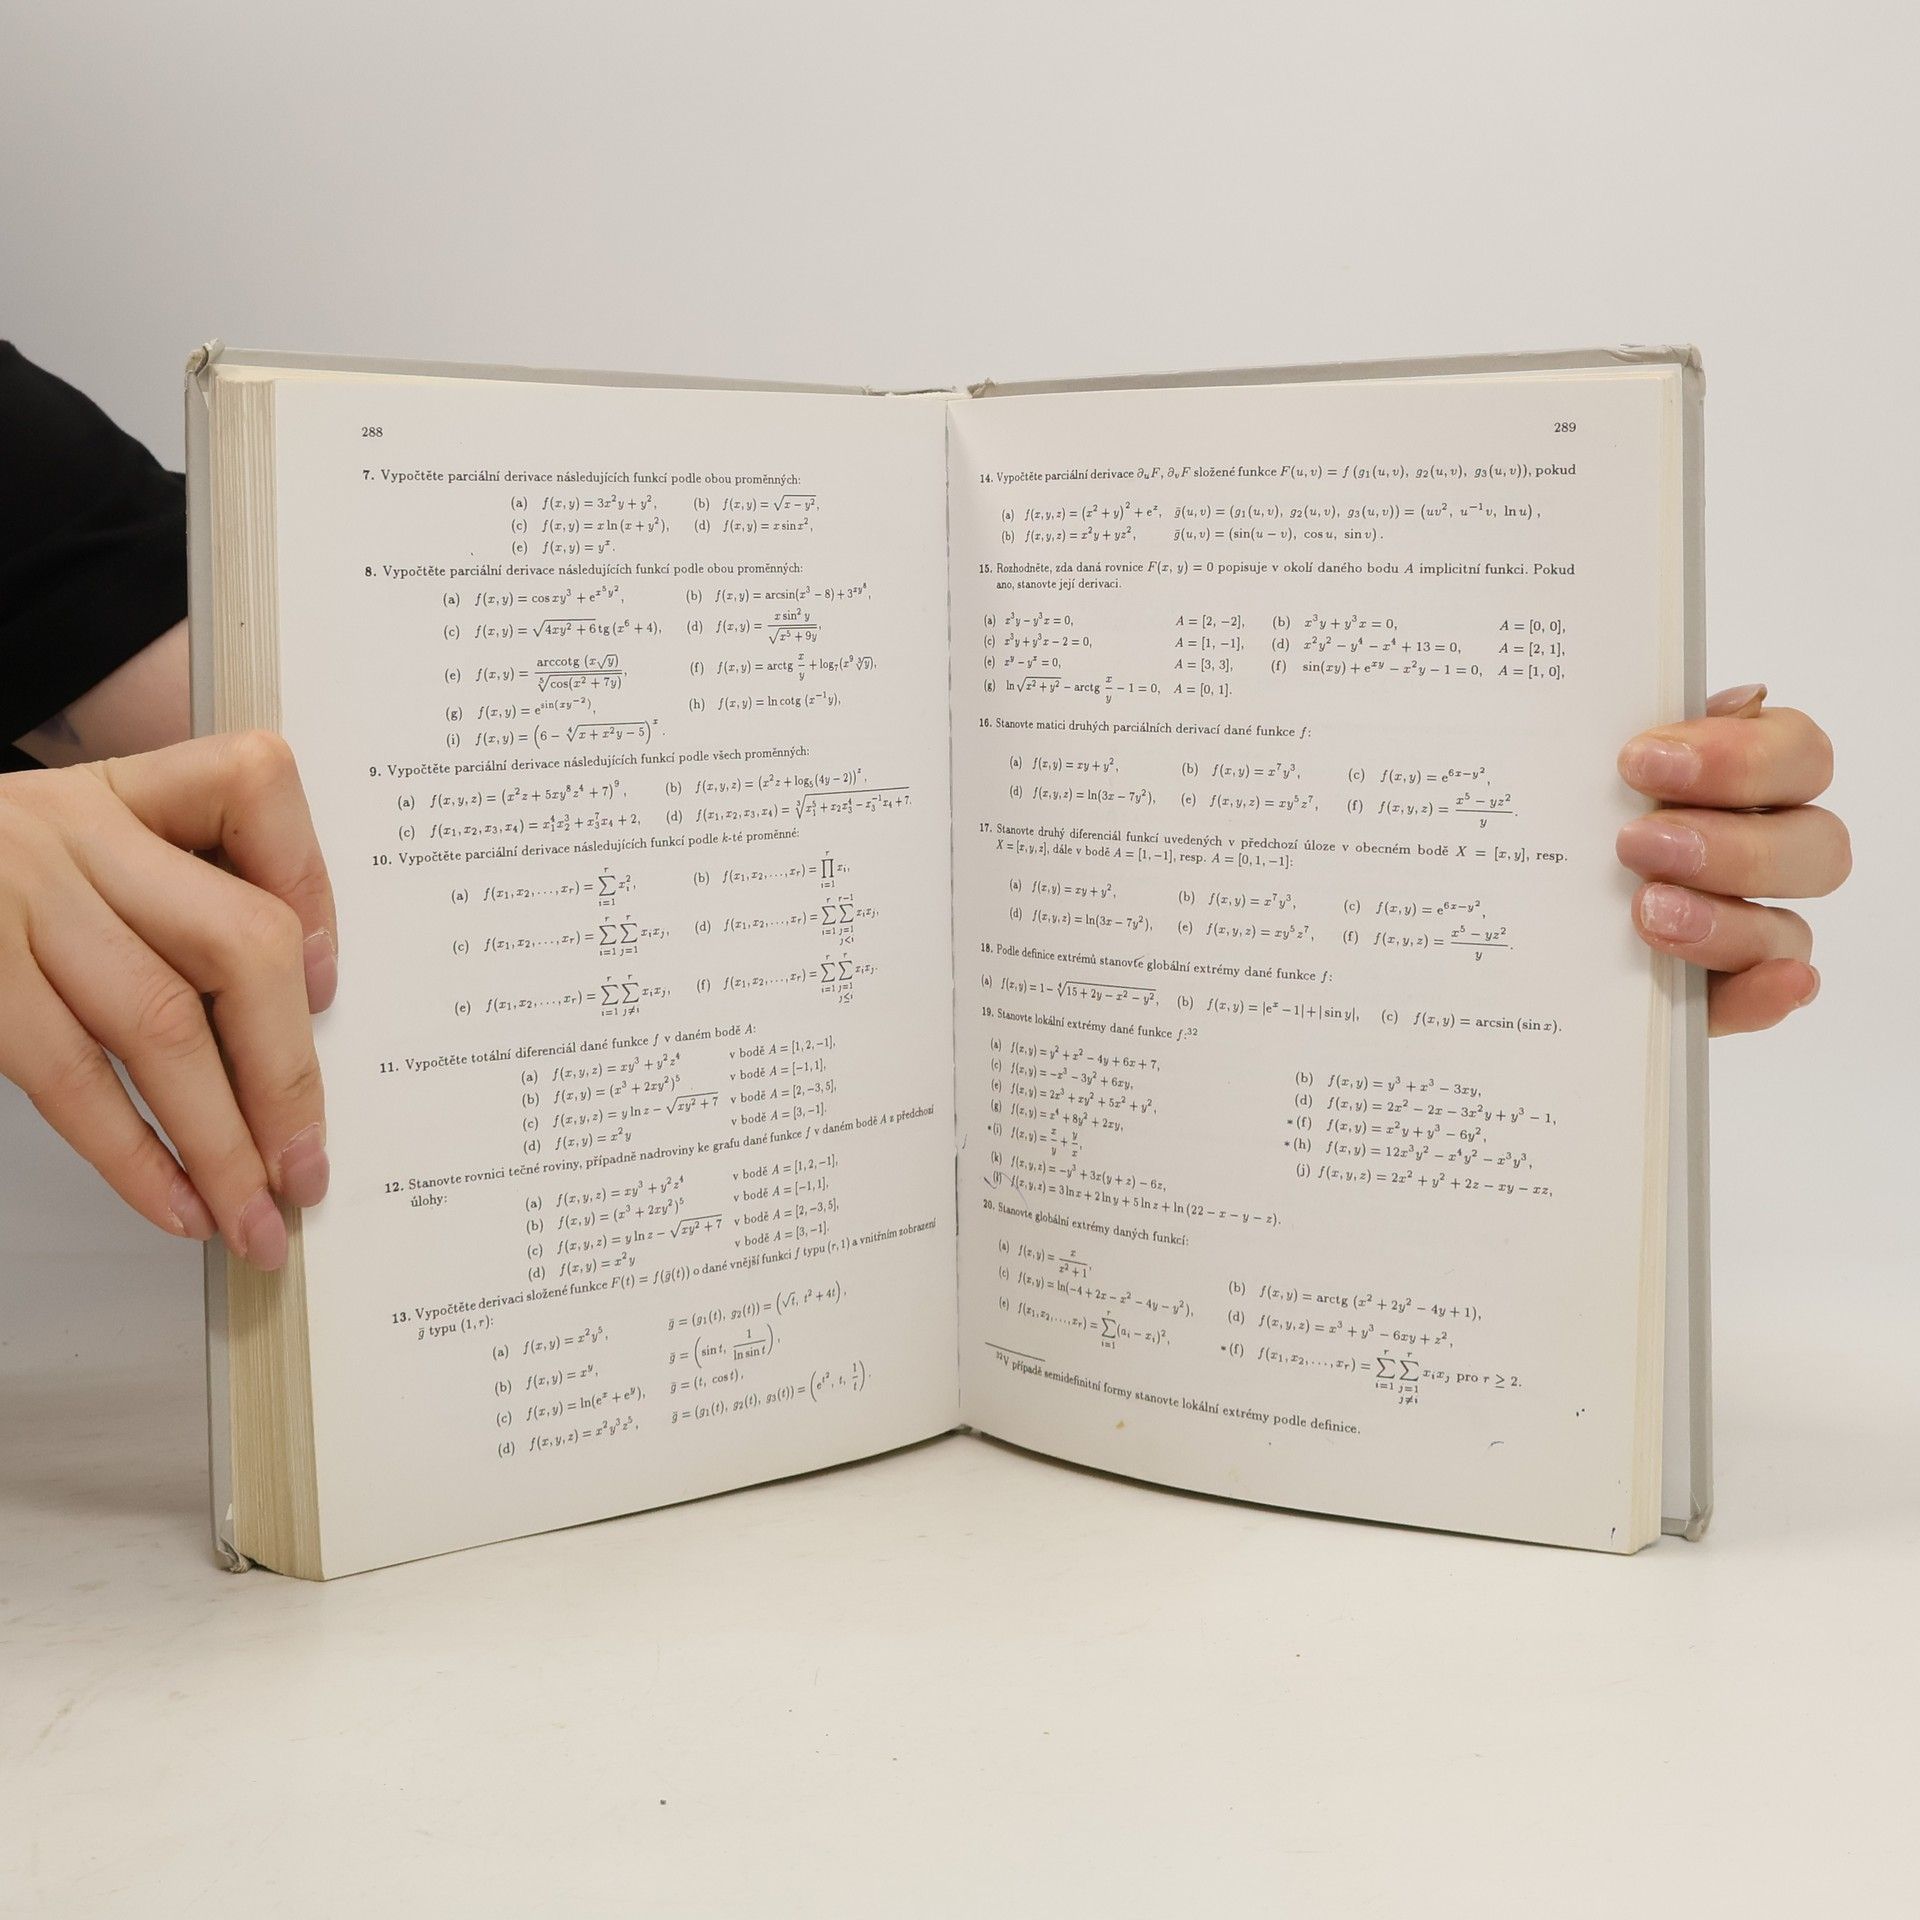 288
7. Vypočtěte parciální derivace následujících funkcí podle obou proměnných:
(a) f(x, y) = 3x²y + y², (b) f(x, y) = √(x − y²),
(c) f(x, y) = x ln (x + y²), (d) f(x, y) = x sin x²,
(e) f(x, y) = yˣ.
8. Vypočtěte parciální derivace následujících funkcí podle obou proměnných:
(a) f(x, y) = cos xy³ + e^(x⁵y²), (b) f(x, y) = arcsin(x³ − 8) + 3^(xy⁸),
(c) f(x, y) = √(4xy² + 6) tg (x⁶ + 4), (d) f(x, y) = x sin² y / √(x⁵ + 9y),
(e) f(x, y) = arccotg (x√y) / ⁵√(cos(x² + 7y)), (f) f(x, y) = arctg x/y + log₇(x⁹ ∛y),
(g) f(x, y) = e^(sin(xy⁻²)), (h) f(x, y) = ln cotg (x⁻¹y),
(i) f(x, y) = (6 − ⁴√(x + x²y − 5))ˣ.
9. Vypočtěte parciální derivace následujících funkcí podle všech proměnných:
(a) f(x, y, z) = (x²z + 5xy⁸z⁴ + 7)⁹, (b) f(x, y, z) = (x²z + log₅(4y − 2))ᶻ,
(c) f(x₁, x₂, x₃, x₄) = x₁⁴x₂³ + x₃⁷x₄ + 2, (d) f(x₁, x₂, x₃, x₄) = ∛(x₁⁵ + x₂x₃⁴ − x₃⁻¹x₄ + 7).
10. Vypočtěte parciální derivace následujících funkcí podle k-té proměnné:
(a) f(x₁, x₂, ..., xᵣ) = ∑_{i=1}^{r} xᵢ², (b) f(x₁, x₂, ..., xᵣ) = ∏_{i=1}^{r} xᵢ,
(c) f(x₁, x₂, ..., xᵣ) = ∑_{i=1}^{r} ∑_{j=1}^{r} xᵢxⱼ, (d) f(x₁, x₂, ..., xᵣ) = ∑_{i=1}^{r} ∑_{j=1, j<i}^{r−1} xᵢxⱼ,
(e) f(x₁, x₂, ..., xᵣ) = ∑_{i=1}^{r} ∑_{j≠i}^{r} xᵢxⱼ, (f) f(x₁, x₂, ..., xᵣ) = ∑_{i=1}^{r} ∑_{j=1, j≤i}^{r} xᵢxⱼ.
11. Vypočtěte totální diferenciál dané funkce f v daném bodě A:
(a) f(x, y, z) = xy³ + y²z⁴ v bodě A = [1, 2, −1],
(b) f(x, y) = (x³ + 2xy²)⁵ v bodě A = [−1, 1],
(c) f(x, y, z) = y ln z − √(xy² + 7) v bodě A = [2, −3, 5],
(d) f(x, y) = x²y v bodě A = [3, −1].
12. Stanovte rovnici tečné roviny, případně nadroviny ke grafu dané funkce f v daném bodě A z předchozí
úlohy:
(a) f(x, y, z) = xy³ + y²z⁴ v bodě A = [1, 2, −1],
(b) f(x, y) = (x³ + 2xy²)⁵ v bodě A = [−1, 1],
(c) f(x, y, z) = y ln z − √(xy² + 7) v bodě A = [2, −3, 5],
(d) f(x, y) = x²y v bodě A = [3, −1].
13. Vypočtěte derivaci složené funkce F(t) = f(ḡ(t)) o dané vnější funkci f typu (r, 1) a vnitřním zobrazení
ḡ typu (1, r):
(a) f(x, y) = x²y⁵, ḡ = (g₁(t), g₂(t)) = (√t, t² + 4t),
(b) f(x, y) = xʸ, ḡ = (sin t, 1/ln sin t),
(c) f(x, y) = ln(eˣ + eʸ), ḡ = (t, cos t),
(d) f(x, y, z) = x²y³z⁵, ḡ = (g₁(t), g₂(t), g₃(t)) = (e^(t²), t, 1/t).
289
14. Vypočtěte parciální derivace ∂ᵤF, ∂ᵥF složené funkce F(u, v) = f (g₁(u, v), g₂(u, v), g₃(u, v)), pokud
(a) f(x, y, z) = (x² + y)² + eᶻ, ḡ(u, v) = (g₁(u, v), g₂(u, v), g₃(u, v)) = (uv², u⁻¹v, ln u),
(b) f(x, y, z) = x²y + yz², ḡ(u, v) = (sin(u − v), cos u, sin v).
15. Rozhodněte, zda daná rovnice F(x, y) = 0 popisuje v okolí daného bodu A implicitní funkci. Pokud
ano, stanovte její derivaci.
(a) x³y − y³x = 0, A = [2, −2], (b) x³y + y³x = 0, A = [0, 0],
(c) x³y + y³x − 2 = 0, A = [1, −1], (d) x²y² − y⁴ − x⁴ + 13 = 0, A = [2, 1],
(e) xʸ − yˣ = 0, A = [3, 3], (f) sin(xy) + e^(xy) − x²y − 1 = 0, A = [1, 0],
(g) ln √(x² + y²) − arctg x/y − 1 = 0, A = [0, 1].
16. Stanovte matici druhých parciálních derivací dané funkce f:
(a) f(x, y) = xy + y², (b) f(x, y) = x⁷y³, (c) f(x, y) = e^(6x−y²),
(d) f(x, y, z) = ln(3x − 7y²), (e) f(x, y, z) = xy⁵z⁷, (f) f(x, y, z) = (x⁵ − yz²)/y.
17. Stanovte druhý diferenciál funkcí uvedených v předchozí úloze v obecném bodě X = [x, y], resp.
X = [x, y, z], dále v bodě A = [1, −1], resp. A = [0, 1, −1]:
(a) f(x, y) = xy + y², (b) f(x, y) = x⁷y³, (c) f(x, y) = e^(6x−y²),
(d) f(x, y, z) = ln(3x − 7y²), (e) f(x, y, z) = xy⁵z⁷, (f) f(x, y, z) = (x⁵ − yz²)/y.
18. Podle definice extrémů stanovte globální extrémy dané funkce f:
(a) f(x, y) = 1 − ⁴√(15 + 2y − x² − y²), (b) f(x, y) = |eˣ − 1| + | sin y|, (c) f(x, y) = arcsin (sin x).
19. Stanovte lokální extrémy dané funkce f:³²
(a) f(x, y) = y² + x² − 4y + 6x + 7, (b) f(x, y) = y³ + x³ − 3xy,
(c) f(x, y) = −x³ − 3y² + 6xy, (d) f(x, y) = 2x² − 2x − 3x²y + y³ − 1,
(e) f(x, y) = 2x³ + xy² + 5x² + y², *(f) f(x, y) = x²y + y³ − 6y²,
(g) f(x, y) = x⁴ + 8y² + 2xy, *(h) f(x, y) = 12x³y² − x⁴y² − x³y³,
*(i) f(x, y) = x/y + y/x, (j) f(x, y, z) = 2x² + y² + 2z − xy − xz,
(k) f(x, y, z) = −y³ + 3x(y + z) − 6z,
(l) f(x, y, z) = 3 ln x + 2 ln y + 5 ln z + ln (22 − x − y − z).
20. Stanovte globální extrémy daných funkcí:
(a) f(x, y) = x/(x² + 1), (b) f(x, y) = arctg (x² + 2y² − 4y + 1),
(c) f(x, y) = ln(−4 + 2x − x² − 4y − y²), (d) f(x, y, z) = x³ + y³ − 6xy + z²,
(e) f(x₁, x₂, ..., xᵣ) = ∑_{i=1}^{r} (aᵢ − xᵢ)², *(f) f(x₁, x₂, ..., xᵣ) = ∑_{i=1}^{r} ∑_{j=1, j≠i}^{r} xᵢxⱼ pro r ≥ 2.
³²V případě semidefinitní formy stanovte lokální extrémy podle definice.